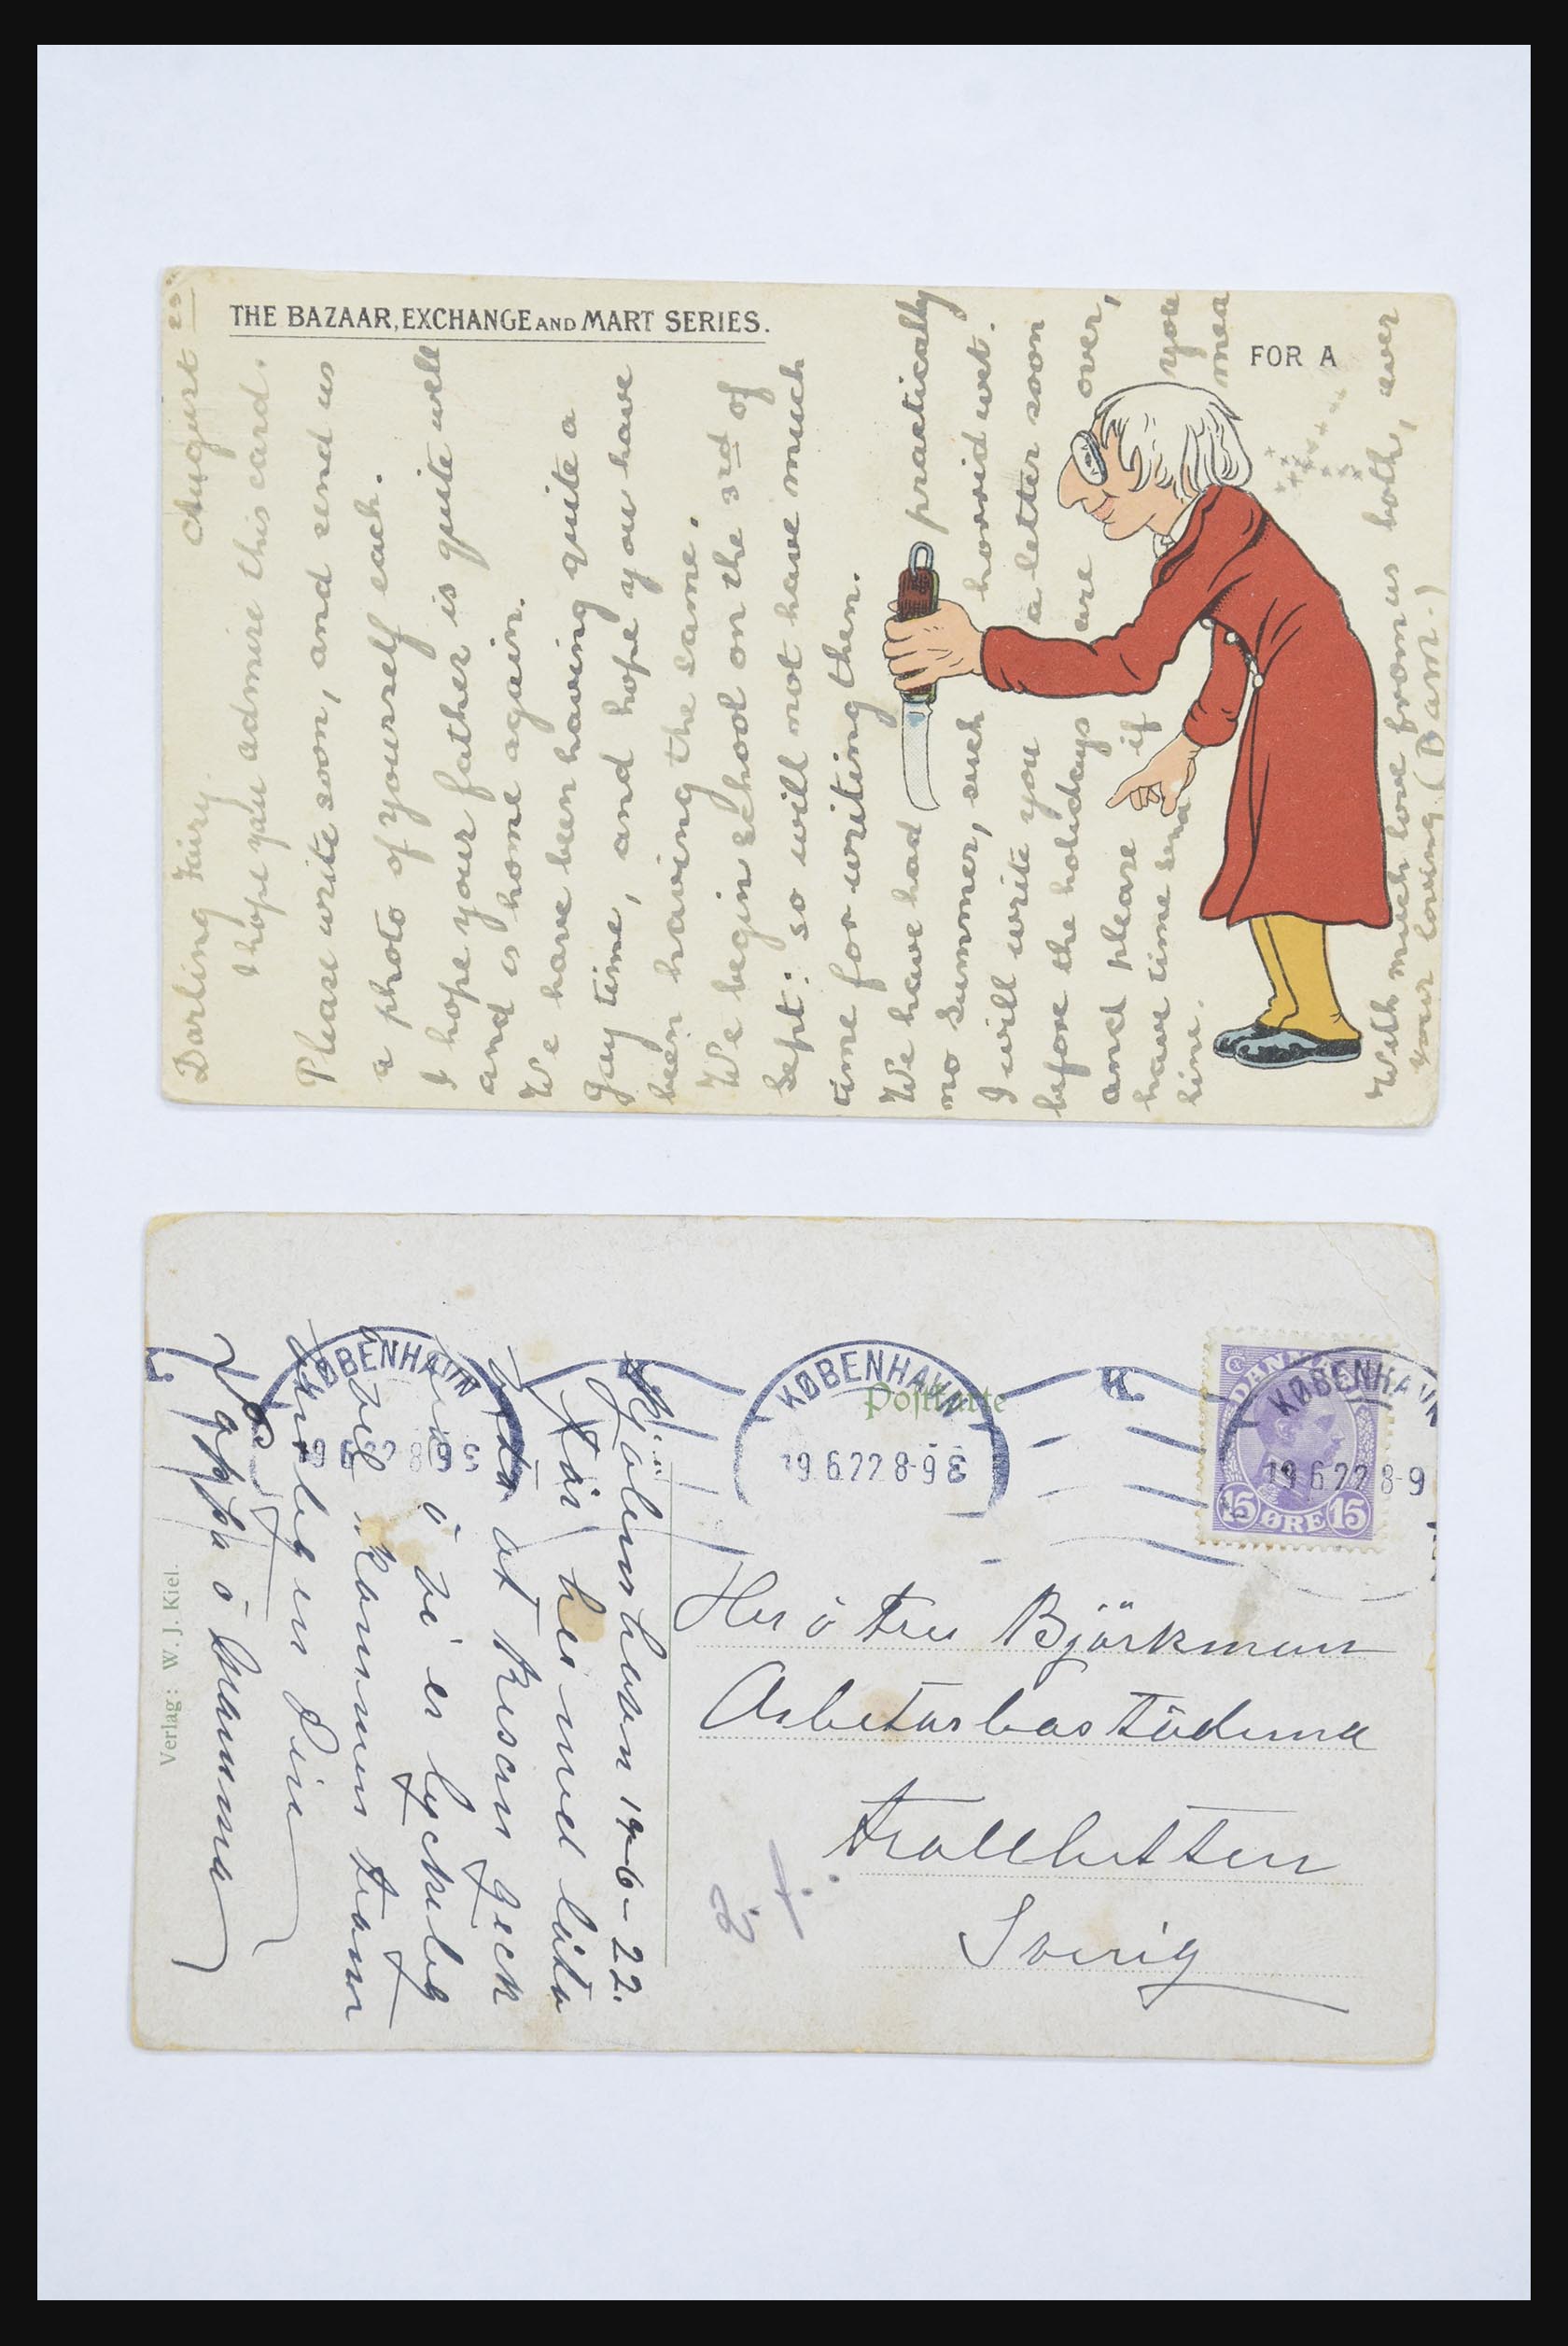 THE BAZAAR, EXCHANGE AND MART SERIES.
FOR A
August
Darling Fairy.
I hope you admire this card.
Please write soon, and send us
a photo of yourself each.
I hope your father is quite well
and is home again.
We have been having quite a
gay time, and hope you have
been having the same.
We begin school on the 3rd of
Sept: so will not have much
time for writing then.
We have had practically
no summer, such horrid wet.
I will write you a letter soon
before the holidays are over,
and please if you
have time send mea
line.
With much love from us both, ever
your loving (Bam.)
Postkarte
KØBENHAVN
19.6.22 8-9
KØBENHAVN
19.6.22 8-9 E
KØBENHAVN
19.6.22 8-9
DANMARK
15 ØRE 15
Verlag: W. J. Kiel.
Kjöbenhavn 19-6-22.
Får her med låta
Eder at Resan geck
bra ö vi er lyckeleg
vel Kommen fram
Pappa ö Mamma
Her ö Fru Björkman
Arbetarbostäderna
Trollhettan
Sverig